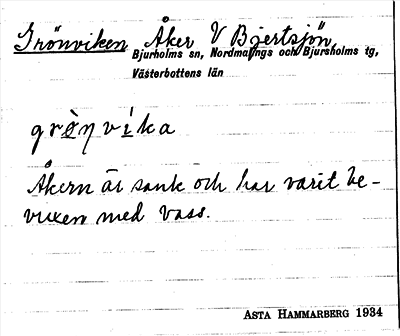 Grönviken Åker V Bjertsjön,
Bjurholms sn, Nordmalings och Bjursholms tg,
Västerbottens län
grö̀nvíka
Åkern är sank och har varit be-
vuxen med vass.
ASTA HAMMARBERG 1934